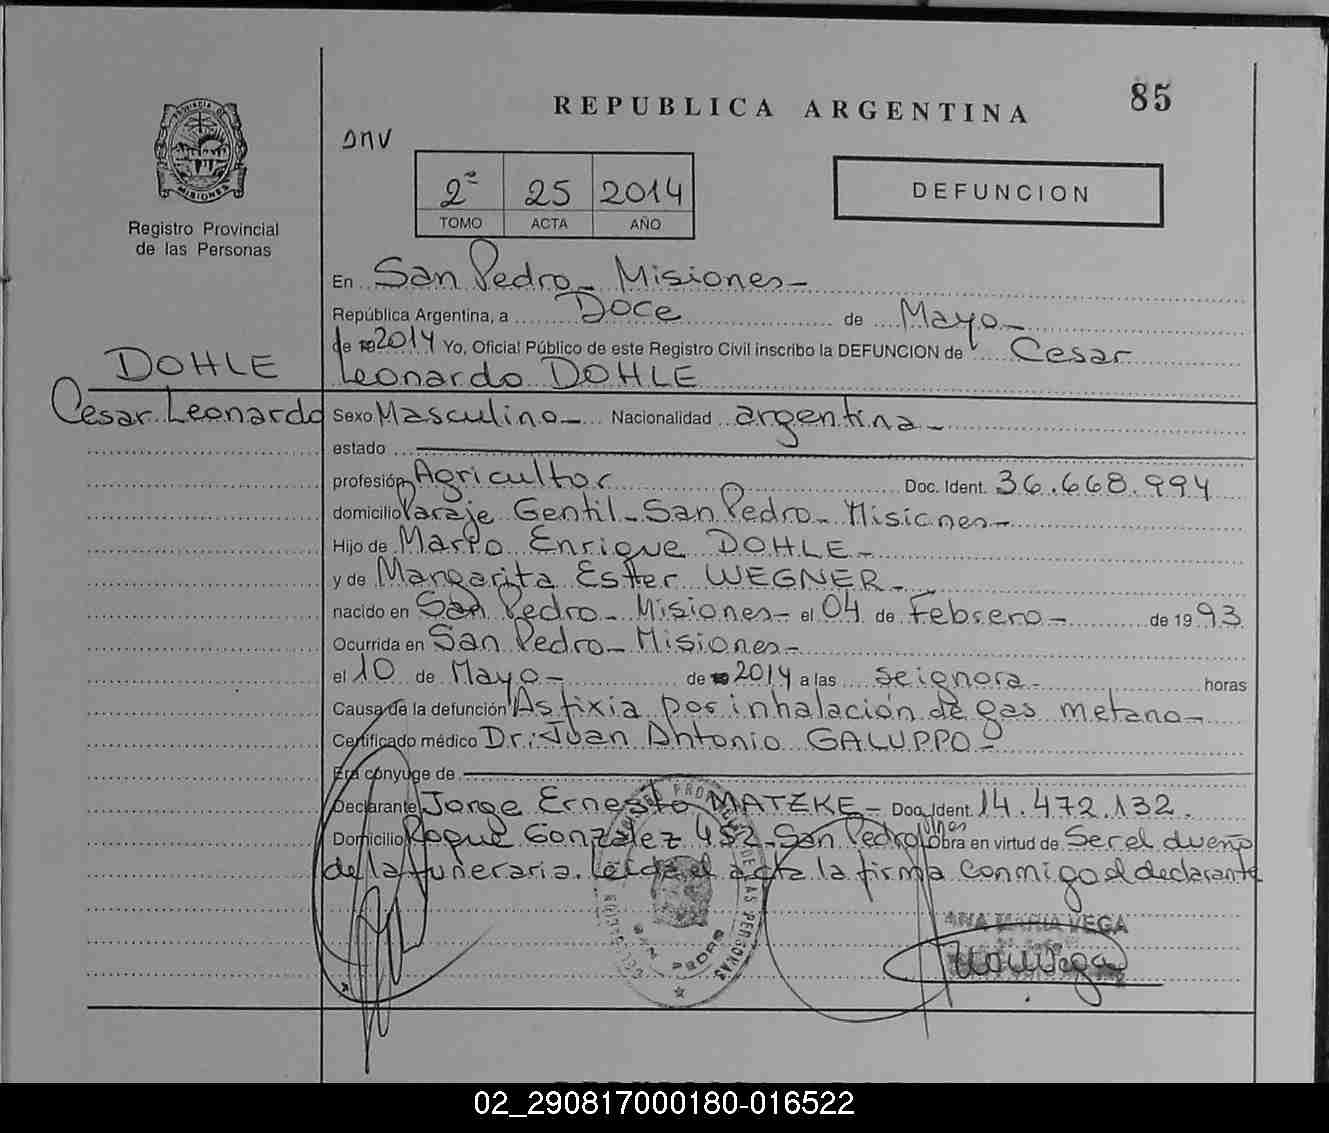 85
REPUBLICA ARGENTINA
PROVINCIA DE
MISIONES
Registro Provincial
de las Personas
DNV
2º 25 2014
TOMO ACTA AÑO
DEFUNCION
En San Pedro - Misiones -
República Argentina, a Doce de Mayo -
de 19 2014 Yo, Oficial Público de este Registro Civil inscribo la DEFUNCION de Cesar
DOHLE
Leonardo DOHLE
Cesar Leonardo
Sexo Masculino - Nacionalidad argentina -
estado
profesión Agricultor Doc. Ident. 36.668.994
domicilio Paraje Gentil - San Pedro - Misiones -
Hijo de Mario Enrique DOHLE -
y de Margarita Ester WEGNER -
nacido en San Pedro - Misiones - el 04 de Febrero - de 19 93
Ocurrida en San Pedro - Misiones -
el 10 de Mayo - de 19 2014 a las se ignora - horas
Causa de la defunción Asfixia por inhalación de gas metano -
Certificado médico Dr: Juan Antonio GALUPPO -
Era cónyuge de
Declarante Jorge Ernesto MATZKE - Doc. Ident. 14.472.132.
Domicilio Roque González 452 - San Pedro Mnes Obra en virtud de Ser el dueño
de la funeraria. Leída el acta la firma conmigo el declarante
ANA MARIA VEGA
SAN PEDRO
DE LAS PERSONAS
02_290817000180-016522